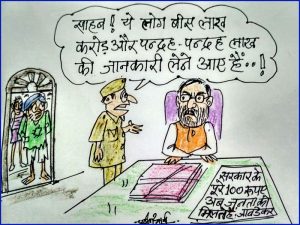 साहब! ये लोग बीस लाख
करोड़ और पन्द्रह-पन्द्रह लाख
की जानकारी लेने आए हैं..!
सरकार के
पूरे 100 रूपए
अब जनता को
मिलते हैं-जावडेकर